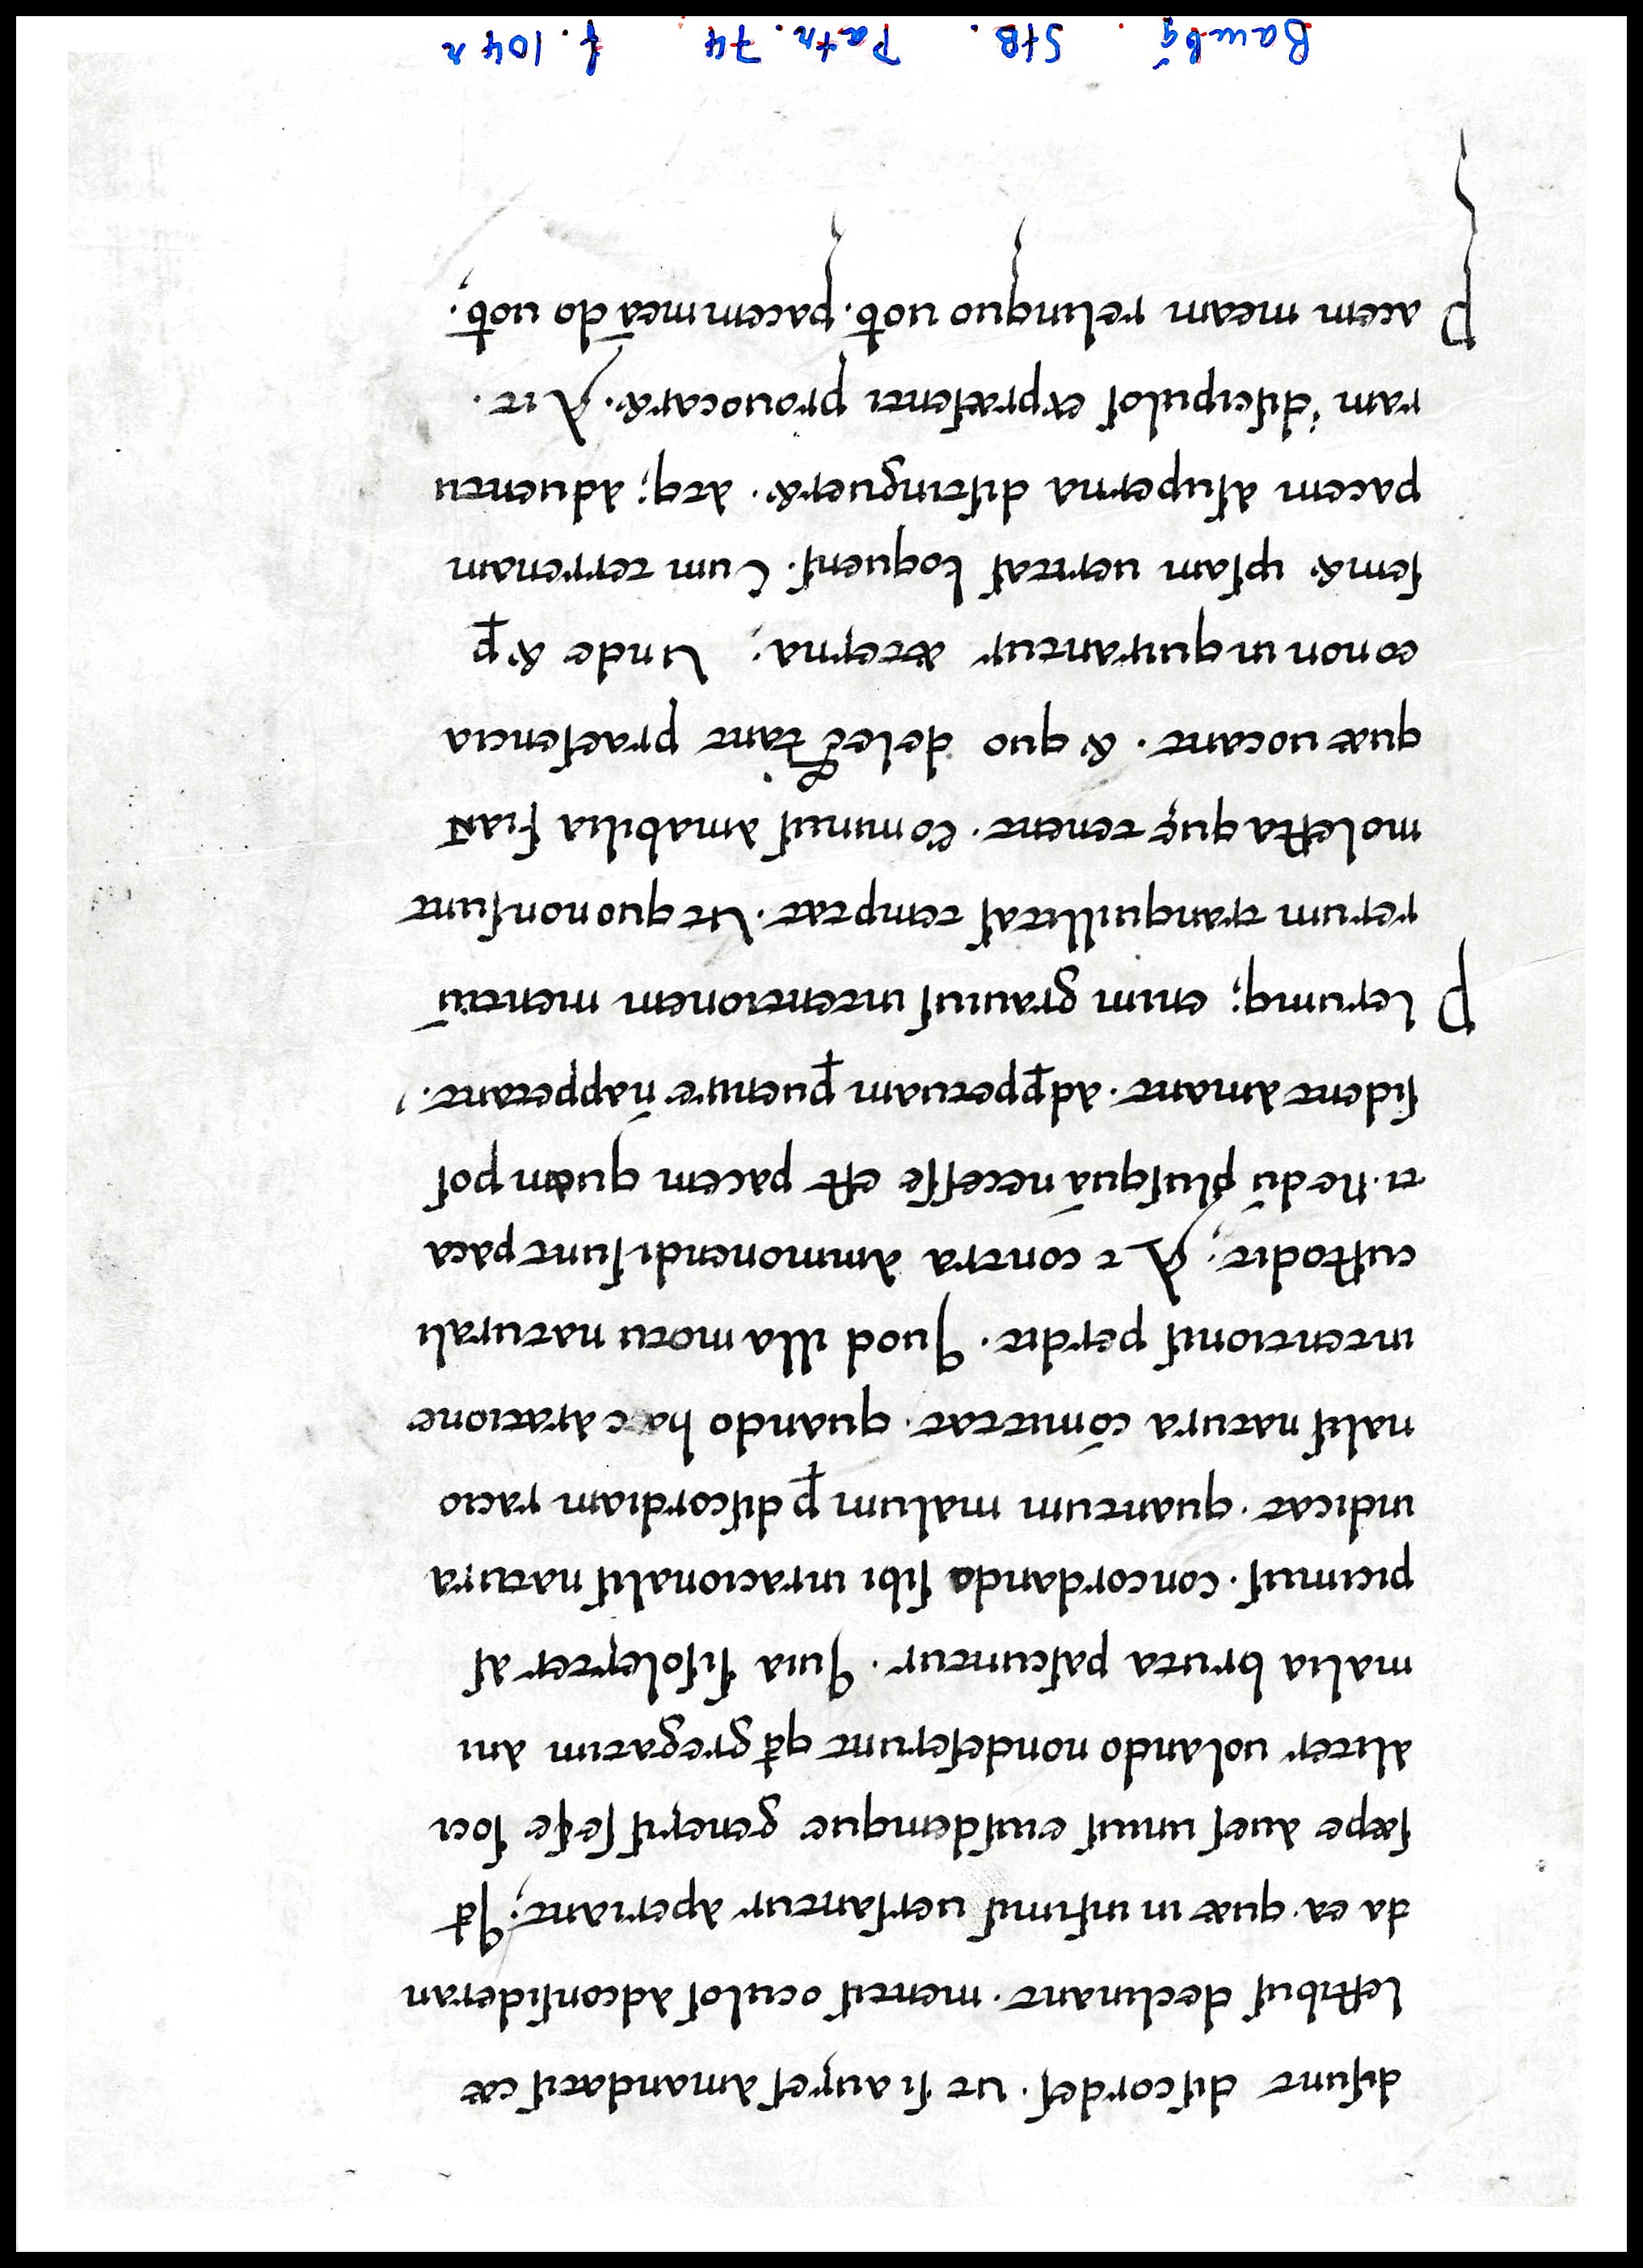 disunt discordes. ut si aures a mandatis cæ
lestibus declinant. mentis oculos ad consideran
da ea. quæ in infimis uersantur aperiant; Qđ
sæpe aues unius eiusdemque generis sese soci
aliter uolando non deserunt qđ gregatim ani
malia bruta pascuntur. Quia si solerter as
picimus. concordando sibi inracionalis natura
indicat. quantum malum ꝑ discordiam racio
nalis natura cōmittat. quando haec a ratione
intentionis perdit. Quod illa motu naturali
custodit; At contra ammonendi sunt paca
ti. Ne dū plusquā necesse est pacem quam pos
sident amant. ad ꝑpetuam ꝑuenire n̄ appetant;
Plerumq; enim grauius intentionem mentiū
rerum tranquillitas temptat. Ut quo non sunt
molesta quę tenent. eo minus amabilia fiant
quæ uocant. & quo delectant praesencia
eo non inquirantur æterna; Unde & ꝑ
sem& ipsam ueritas loquens. Cum terrenam
pacem a superna distinguer&. atq; ad uentu
ram discipulos ex præsenti prouocar&. Ait.
Pacem meam relinquo uob̄. pacem meā do uob̄;
Bambg. StB. Patr. 74, f. 104r